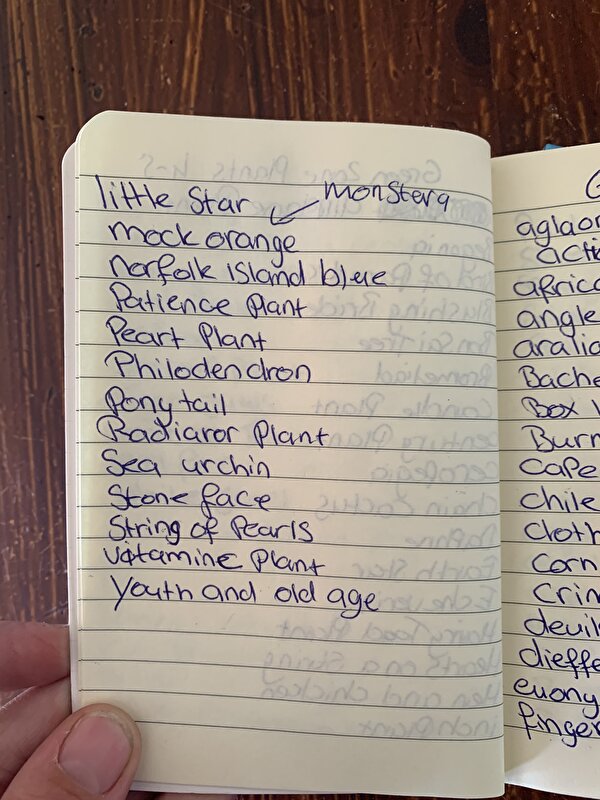 little Star
monstera
mock orange
norfolk island blue
Patience Plant
Peart Plant
Philodendron
Ponytail
Radiaror Plant
Sea urchin
Stone face
String of Pearls
vitamine Plant
Youth and old age
G
aglaor
acti
africa
angle
aralia
Bache
Box
Burn
Cape
chile
cloth
corn
crin
devil
dieffe
euony
finger